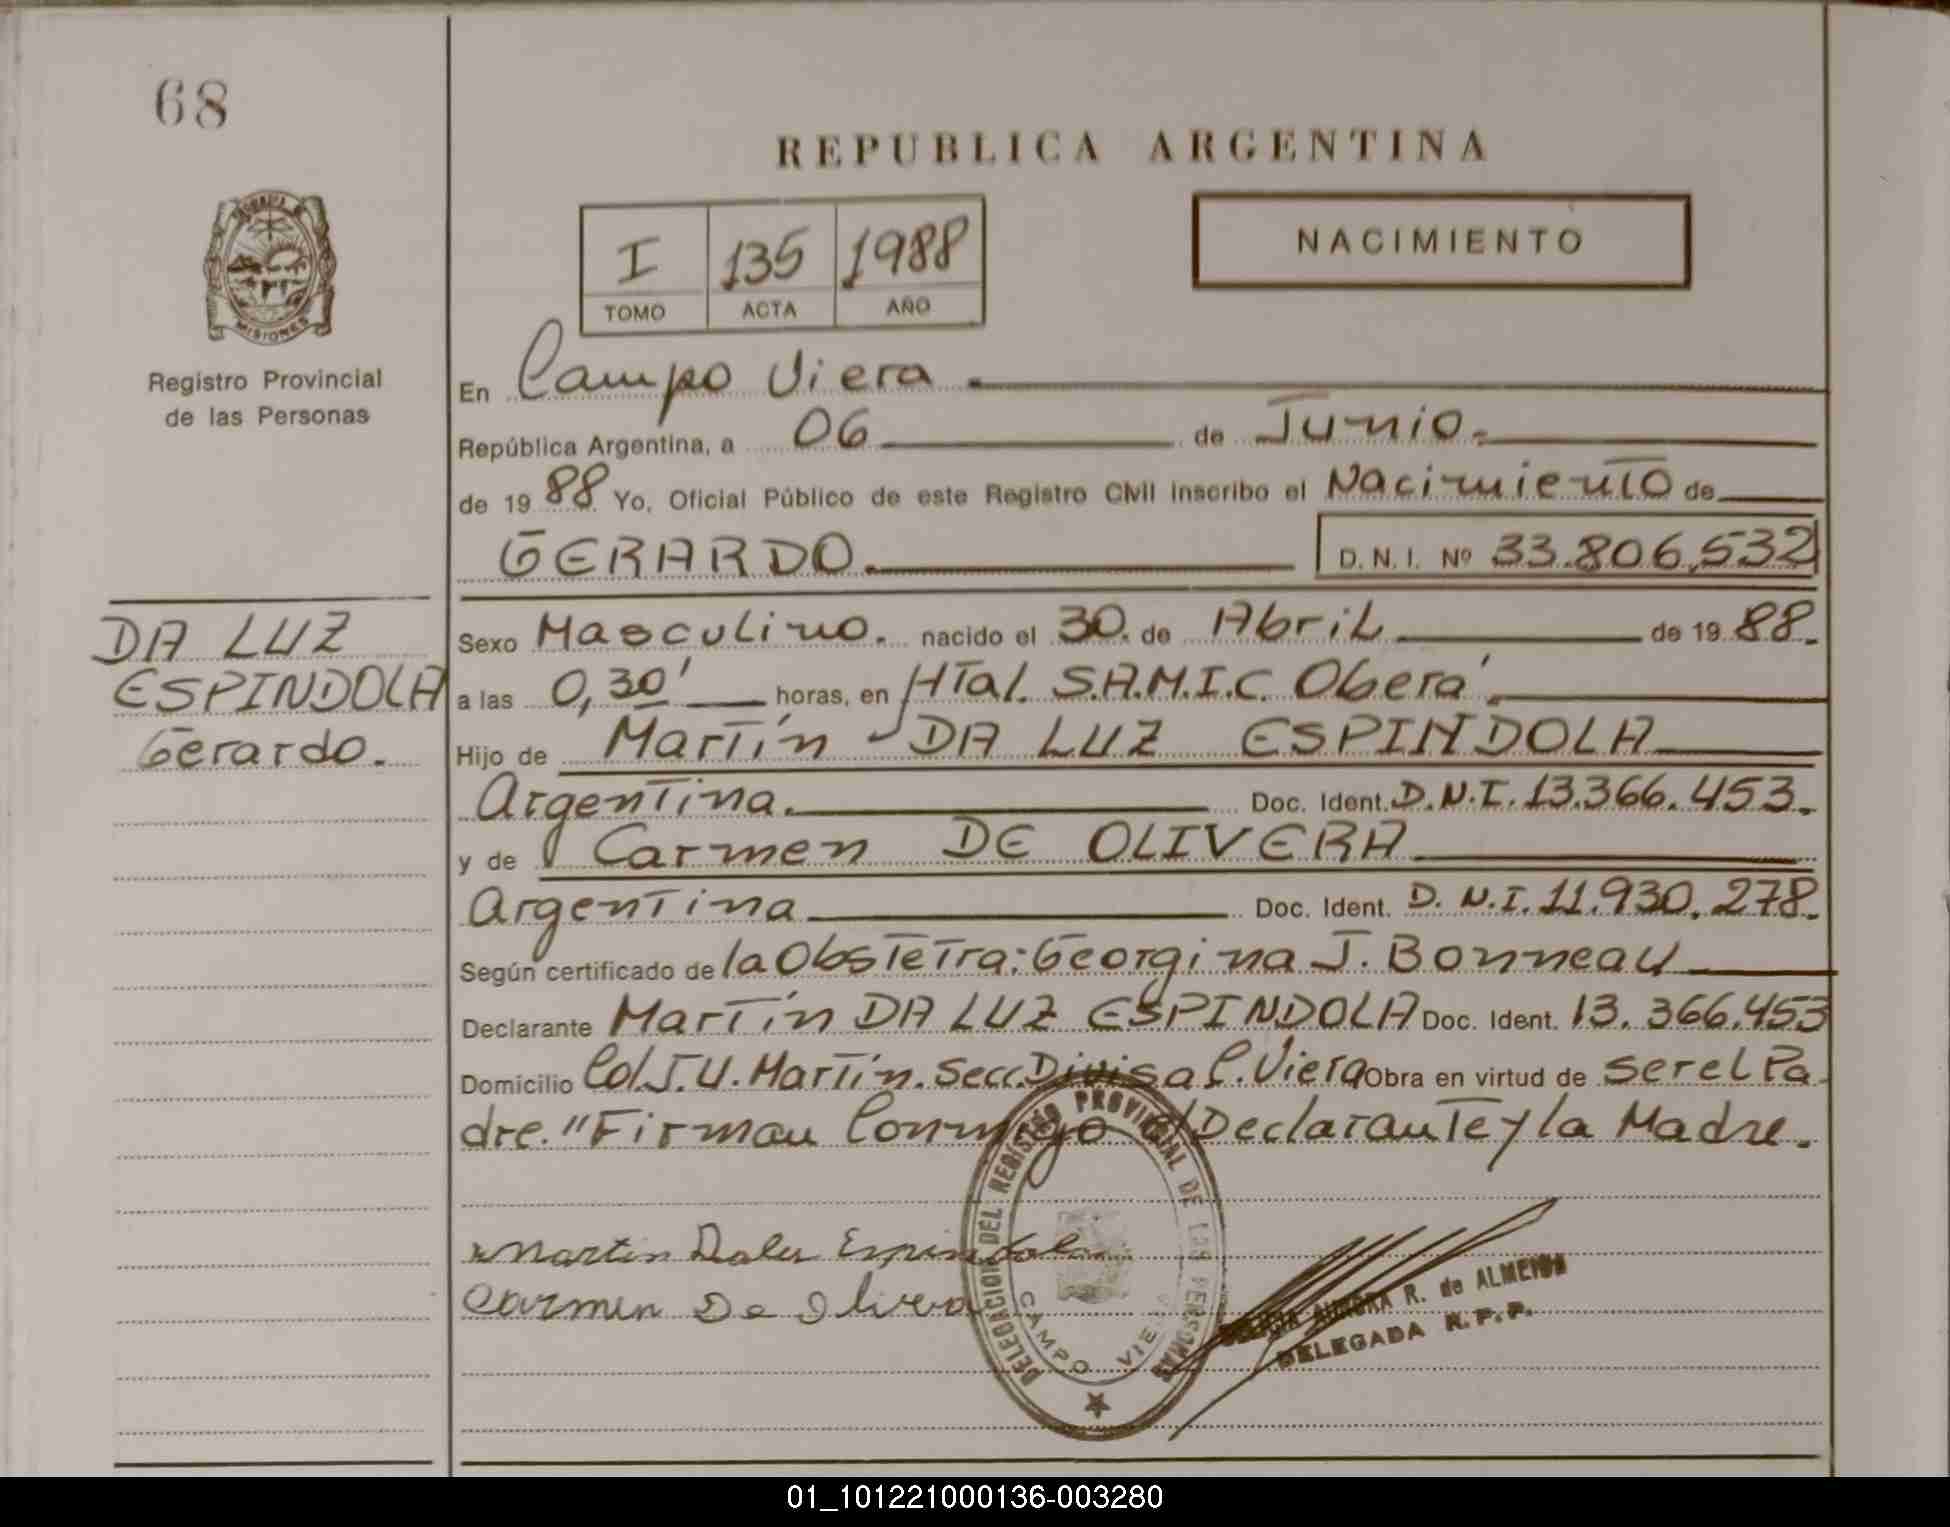 68
REPUBLICA ARGENTINA
MISIONES
Registro Provincial
de las Personas
I 135 1988
TOMO ACTA AÑO
NACIMIENTO
En Campo Viera.
República Argentina, a 06 de Junio.
de 19 88 Yo, Oficial Público de este Registro Civil inscribo el Nacimiento de
GERARDO. D. N. I. Nº 33.806,532
DA LUZ
ESPINDOLA
Gerardo.
Sexo Masculino. nacido el 30. de Abril de 19 88.
a las 0,30' horas, en HTal. S.A.M.I.C. Oberá.
Hijo de Martín DA LUZ ESPINDOLA
Argentina. Doc. Ident. D.N.I. 13.366.453.
y de Carmen DE OLIVERA
Argentina Doc. Ident. D. N.I. 11.930.278.
Según certificado de la Obstetra: Georgina J. Bonneau
Declarante Martín DA LUZ ESPINDOLA Doc. Ident. 13. 366.453
Domicilio Col. J.U. Martín. Secc. Divisa C. Viera Obra en virtud de ser el Pa
dre. "Firman Conmigo el Declarante y la Madre.
Martin Espindola
Carmen De Olivera
DELEGACION DEL REGISTRO PROVINCIAL DE LAS PERSONAS
CAMPO VIERA
AURORA R. de ALMEIDA
DELEGADA R.P.P.
01_101221000136-003280